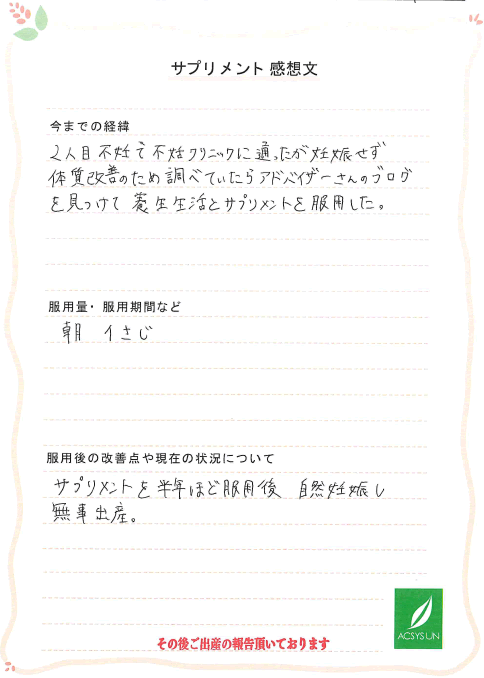 サプリメント 感想文
今までの経緯
2人目不妊で不妊クリニックに通ったが妊娠せず
体質改善のため調べていたらアドバイザーさんのブログ
を見つけて養生生活とサプリメントを服用した。
服用量・服用期間など
朝 1さじ
服用後の改善点や現在の状況について
サプリメントを半年ほど服用後 自然妊娠し
無事出産。
ACSYS UN
その後ご出産の報告頂いております